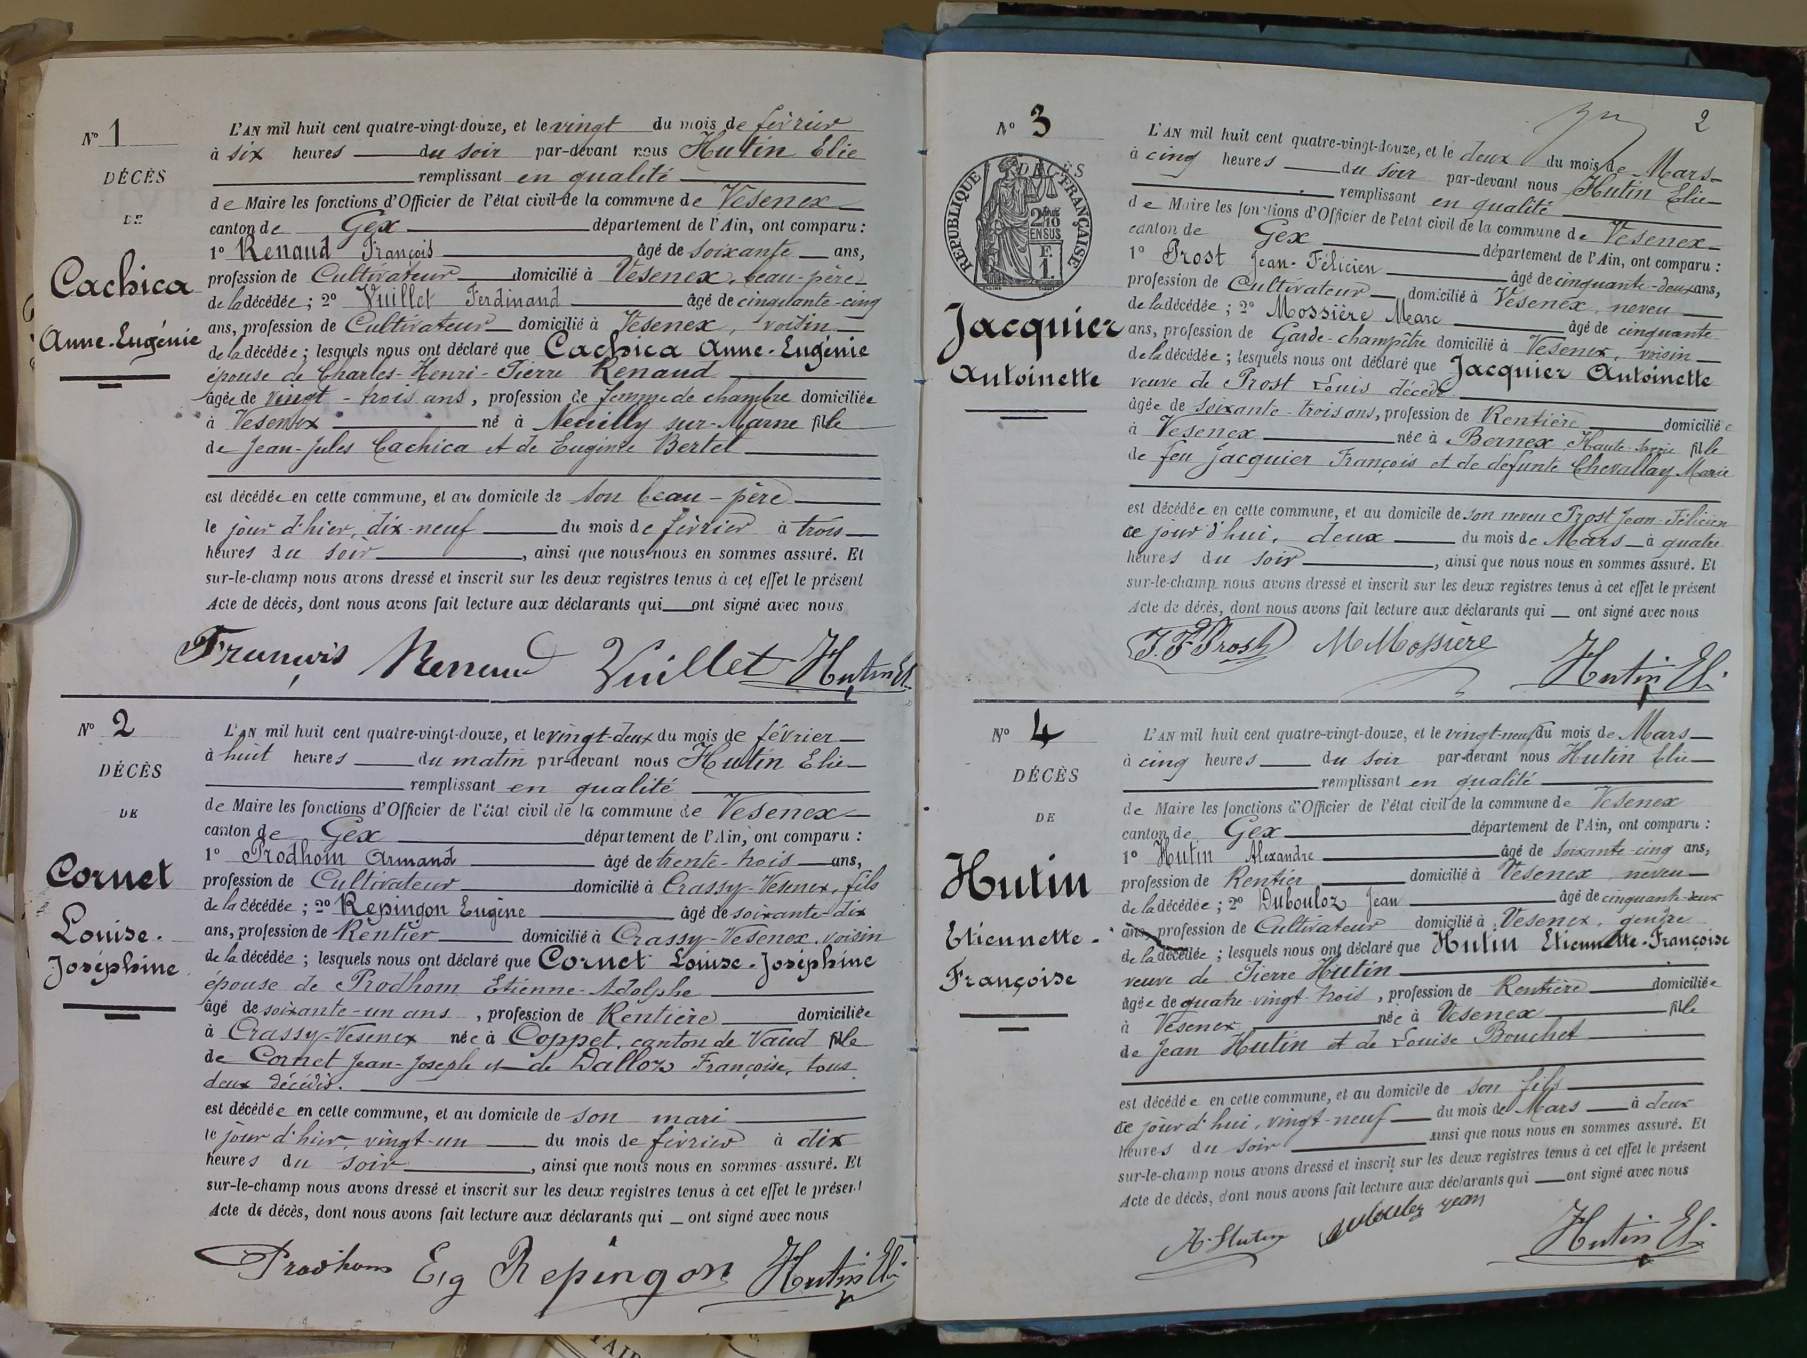 Nº 1
DÉCÈS
DE
Cachica
Anne-Eugénie
L'AN mil huit cent quatre-vingt-douze, et le vingt du mois de février
à six heures du soir par-devant nous Hutin Elie
remplissant en qualité
de Maire les fonctions d'Officier de l'état civil de la commune de Vesenex
canton de Gex département de l'Ain, ont comparu :
1º Renaud François âgé de soixante ans,
profession de Cultivateur domicilié à Vesenex, beau-père
de la décédée ; 2º Vuillet Ferdinand âgé de cinquante-cinq
ans, profession de Cultivateur domicilié à Vesenex, voisin
de la décédée ; lesquels nous ont déclaré que Cachica Anne-Eugénie
épouse de Charles-Henri-Pierre Renaud
âgée de vingt-trois ans, profession de femme de chambre domiciliée
à Vesenex né à Neuilly sur-Marne fille
de Jean-Jules Cachica et de Eugénie Bertel
est décédée en cette commune, et au domicile de son beau-père
le jour d'hier, dix-neuf du mois de février à trois
heures du soir, ainsi que nous nous en sommes assuré. Et
sur-le-champ nous avons dressé et inscrit sur les deux registres tenus à cet effet le présent
Acte de décès, dont nous avons fait lecture aux déclarants qui ont signé avec nous
François Renaud Vuillet Hutin El.
Nº 2
DÉCÈS
DE
Cornet
Louise-
Joséphine
L'AN mil huit cent quatre-vingt-douze, et le vingt-deux du mois de février
à huit heures du matin par-devant nous Hutin Elie
remplissant en qualité
de Maire les fonctions d'Officier de l'état civil de la commune de Vesenex
canton de Gex département de l'Ain, ont comparu :
1º Prodhom Armand âgé de trente-trois ans,
profession de Cultivateur domicilié à Crassy-Vesenex, fils
de la décédée ; 2º Repingon Eugène âgé de soixante-dix
ans, profession de Rentier domicilié à Crassy-Vesenex, voisin
de la décédée ; lesquels nous ont déclaré que Cornet Louise-Joséphine
épouse de Prodhom Etienne-Adolphe
âgé de soixante-un ans, profession de Rentière domiciliée
à Crassy-Vesenex née à Coppet, canton de Vaud fille
de Cornet Jean-Joseph et de Dalloz Françoise, tous
deux décédés.
est décédée en cette commune, et au domicile de son mari
le jour d'hier, vingt-un du mois de février à dix
heures du soir, ainsi que nous nous en sommes assuré. Et
sur-le-champ nous avons dressé et inscrit sur les deux registres tenus à cet effet le présent
Acte de décès, dont nous avons fait lecture aux déclarants qui ont signé avec nous
Prodhom Eug Repingon Hutin Eli
2
Nº 3
DÉCÈS
RÉPUBLIQUE FRANÇAISE
2/10
EN SUS
F.
1
Jacquier
Antoinette
L'AN mil huit cent quatre-vingt-douze, et le deux du mois de Mars
à cinq heures du soir par-devant nous Hutin Elie
remplissant en qualité
de Maire les fonctions d'Officier de l'état civil de la commune de Vesenex
canton de Gex département de l'Ain, ont comparu :
1º Prost Jean-Félicien âgé de cinquante-deux ans,
profession de Cultivateur domicilié à Vesenex, neveu
de la décédée ; 2º Mossière Marc âgé de cinquante
ans, profession de Garde-champêtre domicilié à Vesenex, voisin
de la décédée ; lesquels nous ont déclaré que Jacquier Antoinette
veuve de Prost Louis décédé
âgée de soixante-trois ans, profession de Rentière domiciliée
à Vesenex née à Bernex Haute-Savoie fille
de feu Jacquier François et de défunte Chevallay Marie
est décédée en cette commune, et au domicile de son neveu Prost Jean-Félicien
ce jour d'hui, deux du mois de Mars à quatre
heures du soir, ainsi que nous nous en sommes assuré. Et
sur-le-champ nous avons dressé et inscrit sur les deux registres tenus à cet effet le présent
Acte de décès, dont nous avons fait lecture aux déclarants qui ont signé avec nous
J. F. Prost M Mossière Hutin Eli
Nº 4
DÉCÈS
DE
Hutin
Etiennette-
Françoise
L'AN mil huit cent quatre-vingt-douze, et le vingt-neuf du mois de Mars
à cinq heures du soir par-devant nous Hutin Elie
remplissant en qualité
de Maire les fonctions d'Officier de l'état civil de la commune de Vesenex
canton de Gex département de l'Ain, ont comparu :
1º Hutin Alexandre âgé de soixante-cinq ans,
profession de Rentier domicilié à Vesenex neveu
de la décédée ; 2º Dubouloz Jean âgé de cinquante-deux
ans, profession de Cultivateur domicilié à Vesenex, gendre
de la décédée ; lesquels nous ont déclaré que Hutin Etiennette-Françoise
veuve de Pierre Hutin
âgée de quatre-vingt-trois, profession de Rentière domiciliée
à Vesenex née à Vesenex fille
de Jean Hutin et de Louise Bouchet
est décédée en cette commune, et au domicile de son fils
ce jour d'hui, vingt-neuf du mois de Mars à deux
heures du soir ainsi que nous nous en sommes assuré. Et
sur-le-champ nous avons dressé et inscrit sur les deux registres tenus à cet effet le présent
Acte de décès, dont nous avons fait lecture aux déclarants qui ont signé avec nous
A. Hutin Dubouloz Jean Hutin Eli